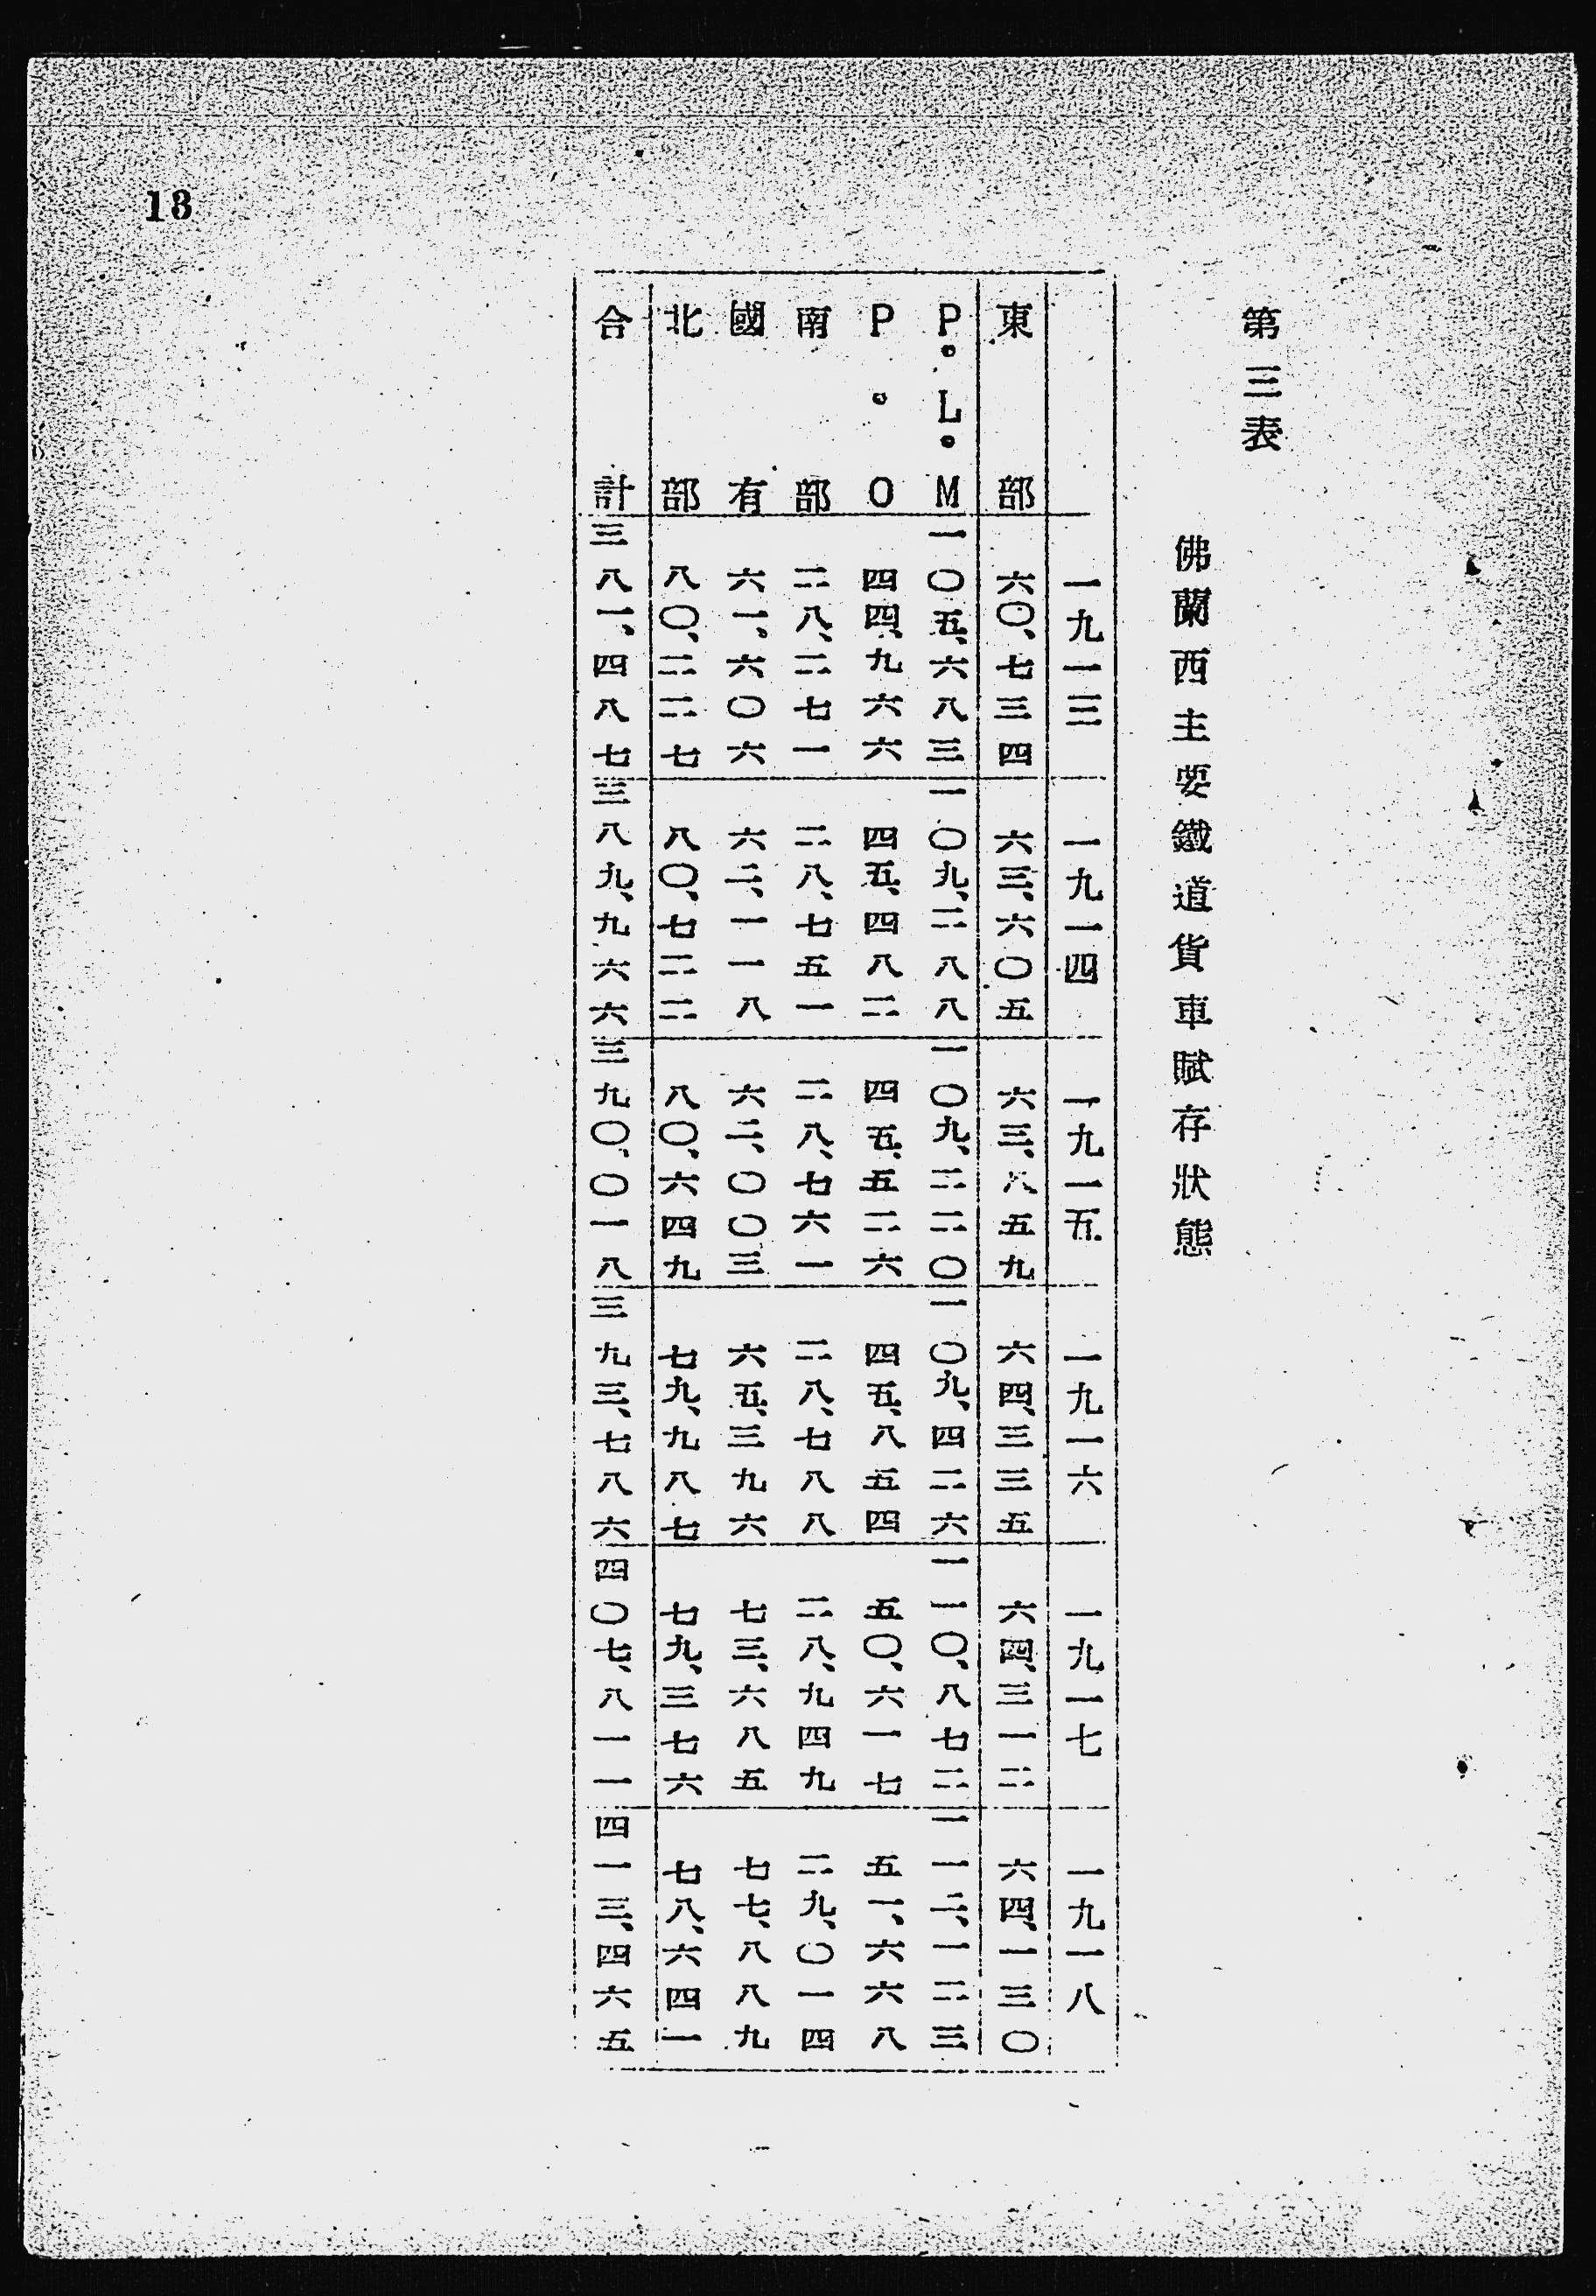 18
第三表
佛蘭西主要鐵道貨車賦存狀態
一九一三 一九一四 一九一五 一九一六 一九一七 一九一八
東部 六〇、七三四 六三、六〇五 六三、八五九 六四、三三五 六四、三一二 六四、一三〇
P。L。M 一〇五、六八三 一〇九、二八八 一〇九、二二〇 一〇九、四二六 一一〇、八七二 一一二、一二三
P。O 四四、九六六 四五、四八二 四五、五二六 四五、八五四 五〇、六一七 五一、六六八
南部 二八、二七一 二八、七五一 二八、七六一 二八、七八八 二八、九四九 二九、〇一四
國有 六一、六〇六 六二、一一八 六二、〇〇三 六五、三九六 七三、六八五 七七、八八九
北部 八〇、二二七 八〇、七二二 八〇、六四九 七九、九八七 七九、三七六 七八、六四一
合計 三八一、四八七 三八九、九六六 三九〇、〇一八 三九三、七八六 四〇七、八一一 四一三、四六五